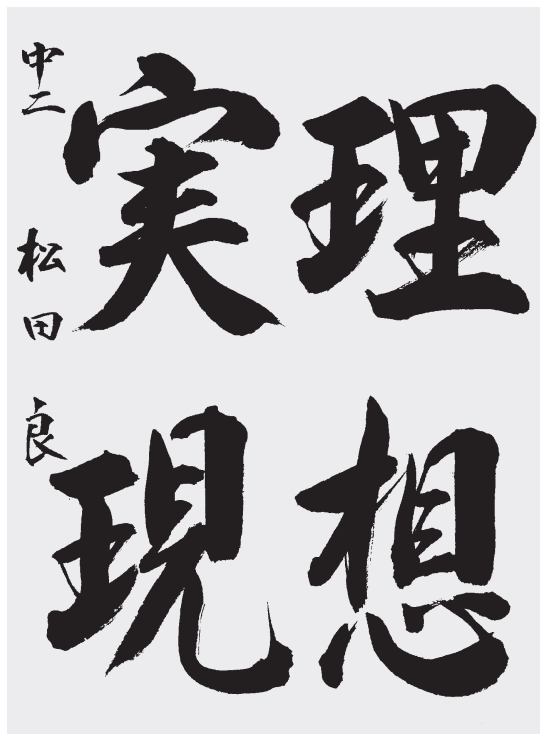 理想
実現
中二 松田 良